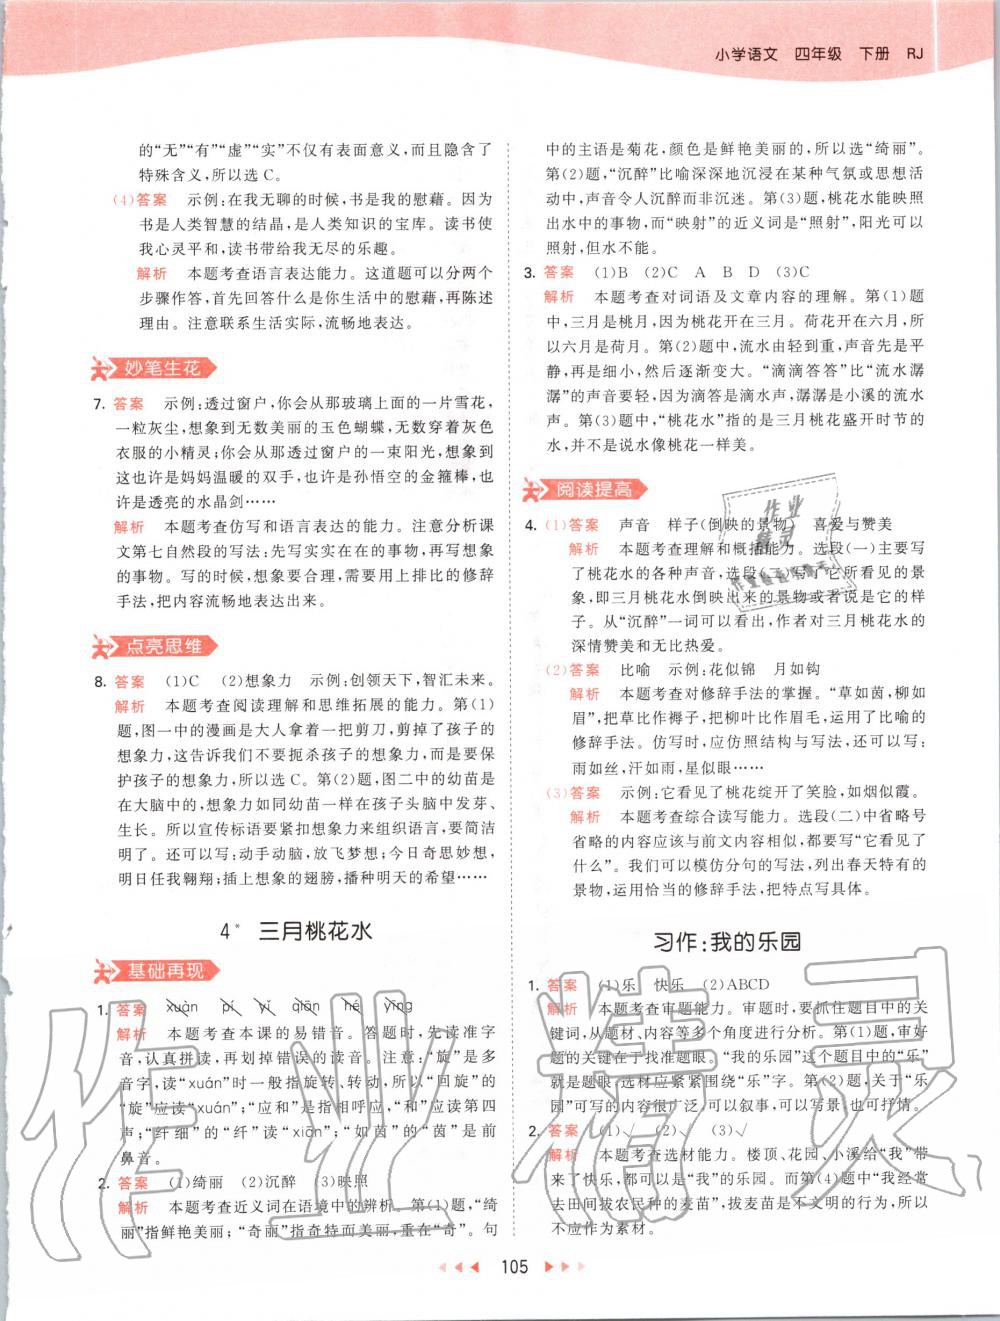 小学语文 四年级 下册 RJ
的“无”“有”“虚”“实”不仅有表面意义,而且隐含了
特殊含义,所以选C。
(4)答案 示例:在我无聊的时候,书是我的慰藉。因为
书是人类智慧的结晶,是人类知识的宝库。读书使
我心灵平和,读书带给我无尽的乐趣。
解析 本题考查语言表达能力。这道题可以分两个
步骤作答,首先回答什么是你生活中的慰藉,再陈述
理由。注意联系生活实际,流畅地表达。
妙笔生花
7. 答案 示例:透过窗户,你会从那玻璃上面的一片雪花,
一粒灰尘,想象到无数美丽的玉色蝴蝶,无数穿着灰色
衣服的小精灵;你会从那透过窗户的一束阳光,想象到
这也许是妈妈温暖的双手,也许是孙悟空的金箍棒,也
许是透亮的水晶剑……
解析 本题考查仿写和语言表达的能力。注意分析课
文第七自然段的写法:先写实实在在的事物,再写想象
的事物。写的时候,想象要合理,需要用上排比的修辞
手法,把内容流畅地表达出来。
点亮思维
8. 答案 (1)C (2)想象力 示例:创领天下,智汇未来。
解析 本题考查阅读理解和思维拓展的能力。第(1)
题,图一中的漫画是大人拿着一把剪刀,剪掉了孩子的
想象力,这告诉我们不要扼杀孩子的想象力,而是要保
护孩子的想象力,所以选C。第(2)题,图二中的幼苗是
在大脑中的,想象力如同幼苗一样在孩子头脑中发芽、
生长。所以宣传标语要紧扣想象力来组织语言,要简洁
明了。还可以写:动手动脑,放飞梦想;今日奇思妙想,
明日任我翱翔;插上想象的翅膀,播种明天的希望……
4* 三月桃花水
基础再现
1. 答案 xuàn pí yǐ qiān hé yīng
解析 本题考查本课的易错音。答题时,先读准字
音,认真拼读,再划掉错误的读音。注意:“旋”是多
音字,读“xuán”时一般指旋转、转动,所以“回旋”的
“旋”应读“xuán”;“应和”是指相呼应,“和”应读第四
声;“纤细”的“纤”读“xiān”;“如茵”的“茵”是前
鼻音。
2. 答案 (1)绮丽 (2)沉醉 (3)映照
解析 本题考查近义词在语境中的辨析。第(1)题,“绮
丽”指鲜艳美丽;“奇丽”指奇特而美丽,重在“奇”。句
中的主语是菊花,颜色是鲜艳美丽的,所以选“绮丽”。
第(2)题,“沉醉”比喻深深地沉浸在某种气氛或思想活
动中,声音令人沉醉而非沉迷。第(3)题,桃花水能映照
出水中的事物,而“映射”的近义词是“照射”,阳光可以
照射,但水不能。
3. 答案 (1)B (2)C A B D (3)C
解析 本题考查对词语及文章内容的理解。第(1)题
中,三月是桃月,因为桃花开在三月。荷花开在六月,所
以六月是荷月。第(2)题中,流水由轻到重,声音先是平
静,再是细小,然后逐渐变大。“滴滴答答”比“流水潺
潺”的声音要轻,因为滴答是滴水声,潺潺是小溪的流水
声。第(3)题中,“桃花水”指的是三月桃花盛开时节的
水,并不是说水像桃花一样美。
阅读提高
4. (1)答案 声音 样子(倒映的景物) 喜爱与赞美
解析 本题考查理解和概括能力。选段(一)主要写
了桃花水的各种声音,选段(二)写了它所看见的景
象,即三月桃花水倒映出来的景物或者说是它的样
子。从“沉醉”一词可以看出,作者对三月桃花水的
深情赞美和无比热爱。
(2)答案 比喻 示例:花似锦 月如钩
解析 本题考查对修辞手法的掌握。“草如茵,柳如
眉”,把草比作褥子,把柳叶比作眉毛,运用了比喻的
修辞手法。仿写时,应仿照结构与写法,还可以写:
雨如丝,汗如雨,星似眼……
(3)答案 示例:它看见了桃花绽开了笑脸,如烟似霞。
解析 本题考查综合读写能力。选段(二)中省略号
省略的内容应该与前文内容相似,都要写“它看见了
什么”。我们可以模仿分句的写法,列出春天特有的
景物,运用恰当的修辞手法,把特点写具体。
习作:我的乐园
1. 答案 (1)乐 快乐 (2)ABCD
解析 本题考查审题能力。审题时,要抓住题目中的关
键词,从题材、内容等多个角度进行分析。第(1)题,审
题的关键在于找准题眼。“我的乐园”这个题目中的“乐”
就是题眼,选材应紧紧围绕“乐”字。第(2)题,关于“乐
园”可写的内容很广泛,可以叙事,可以写景,也可抒情。
2. 答案 (1)√ (2)√ (3)√
解析 本题考查选材能力。楼顶、花园、小溪给“我”带
来了快乐,所以都是“我”的乐园。而第(4)题中“我经常
去田间拔农民种的麦苗”,拔麦苗是不文明的行为,所以
不应作为素材。
105